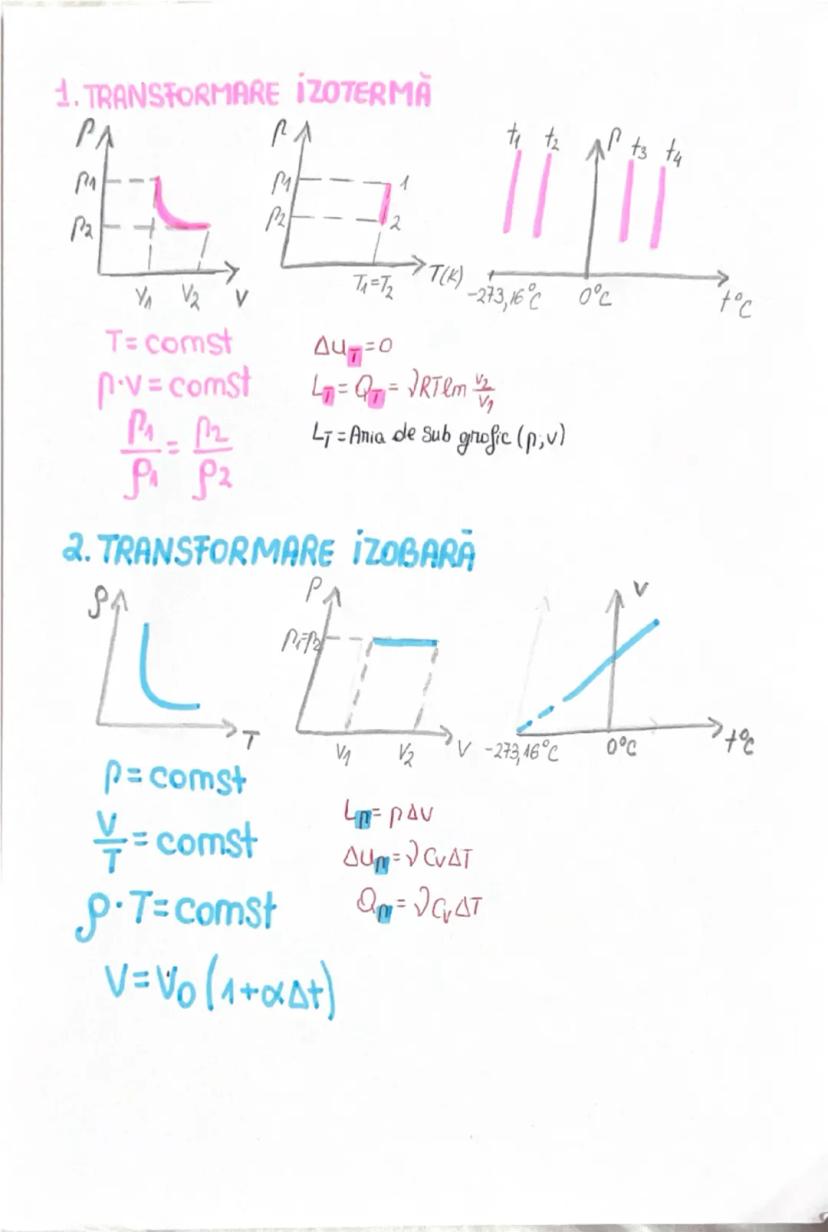 1. TRANSFORMARE IZOTERMĂ
p p1 p2 V1 V2 V
p p1 p2 1 2 T1=T2 T(K)
t1 t2 p t3 t4 -273,16°C 0°C t°C
T=const
p·V=const
p1/ρ1 = p2/ρ2
ΔU_T=0
L_T=Q_T=νRTln V2/V1
L_T=Aria de sub grafic (p,v)
2. TRANSFORMARE IZOBARĂ
ρ T
p p1=p2 V1 V2 V
V -273,16°C 0°C t°C
p=const
V/T=const
ρ·T=const
V=V0(1+αΔt)
L_p=pΔV
ΔU_p=νCvΔT
Q_p=νCvΔT